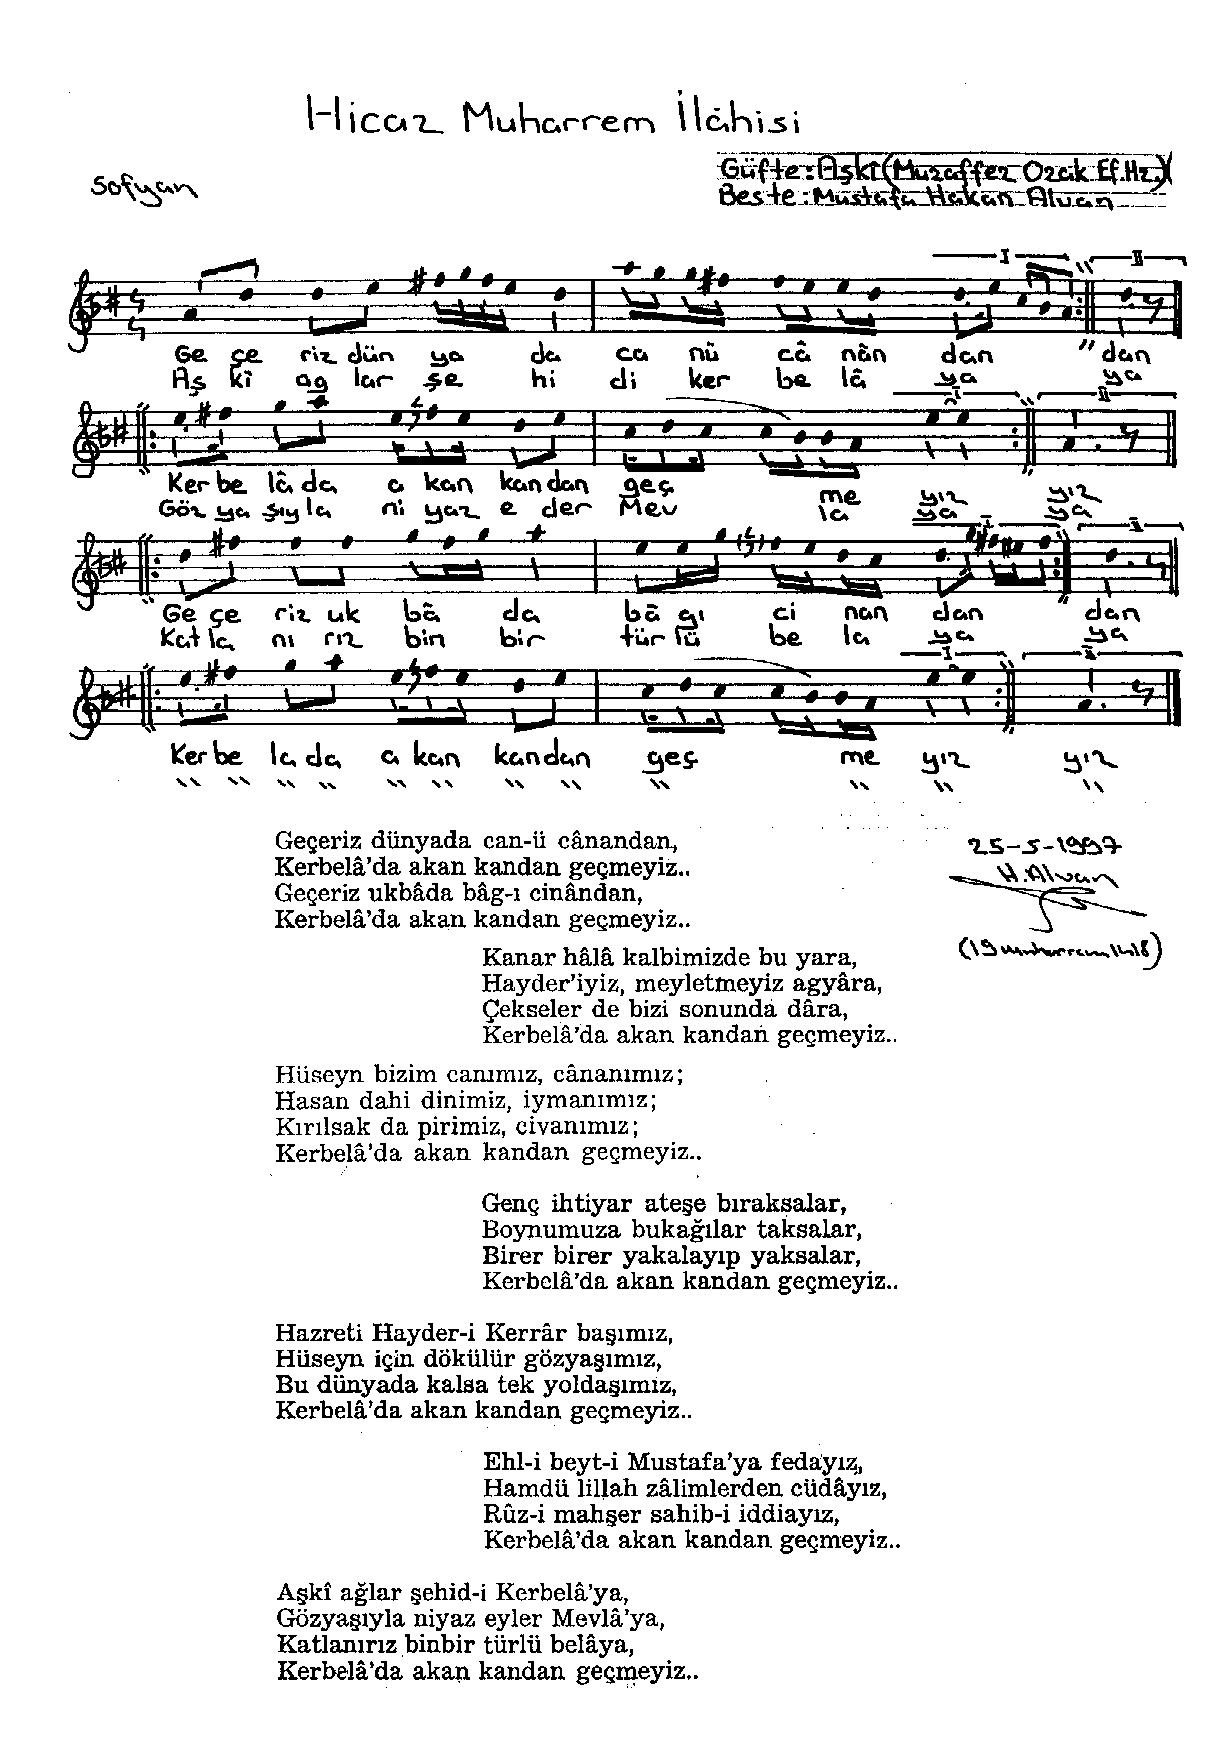 Hicaz Muharrem İlâhisi
Güfte: Aşkî (Muzaffer Ozak Ef. Hz.)
Sofyan
Beste: Mustafa Hakan Alvan
I II
Ge çe riz dün ya da ca nü câ nân dan " dan
Aş kî ağ lar şe hi di ker be lâ ya ya
I II
Ker be lâ da a kan kan dan geç me yiz yiz
Göz ya şıy la ni yaz e der Mev la ya ya
Ge çe riz uk bâ da bâ gı ci nan dan " dan
Kat la nı rız bin bir tür lü be la ya ya
I II
Ker be la da a kan kan dan geç me yiz yiz
" " " " " " " " " " " "
Geçeriz dünyada can-ü cânandan,
Kerbelâ'da akan kandan geçmeyiz..
Geçeriz ukbâda bâg-ı cinândan,
Kerbelâ'da akan kandan geçmeyiz..
25-5-1997
H. Alvan
(19 Muharrem 1418)
Kanar hâlâ kalbimizde bu yara,
Hayder'iyiz, meyletmeyiz agyâra,
Çekseler de bizi sonunda dâra,
Kerbelâ'da akan kandan geçmeyiz..
Hüseyn bizim canımız, cânanımız;
Hasan dahi dinimiz, iymanımız;
Kırılsak da pirimiz, civanımız;
Kerbelâ'da akan kandan geçmeyiz..
Genç ihtiyar ateşe bıraksalar,
Boynumuza bukağılar taksalar,
Birer birer yakalayıp yaksalar,
Kerbelâ'da akan kandan geçmeyiz..
Hazreti Hayder-i Kerrâr başımız,
Hüseyn için dökülür gözyaşımız,
Bu dünyada kalsa tek yoldaşımız,
Kerbelâ'da akan kandan geçmeyiz..
Ehl-i beyt-i Mustafa'ya fedayız,
Hamdü lillah zâlimlerden cüdâyız,
Rûz-i mahşer sahib-i iddiayız,
Kerbelâ'da akan kandan geçmeyiz..
Aşkî ağlar şehid-i Kerbelâ'ya,
Gözyaşıyla niyaz eyler Mevlâ'ya,
Katlanırız binbir türlü belâya,
Kerbelâ'da akan kandan geçmeyiz..